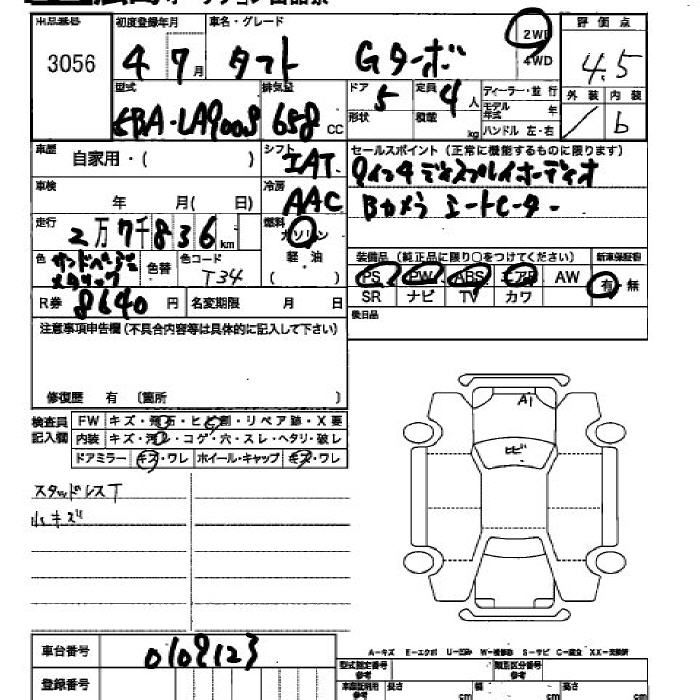 出品番号 初度登録年月 車名・グレード 2WD 評価点
3056 4 7月 タフト Gターボ 4WD 4.5
型式 排気量 ドア 定員 ディーラー・並行 外装 内装
6BA-LA900S 658cc 5 4人 モデル年式 年 / b
形状 積載 kg ハンドル 左・右
車歴 自家用・( ) シフト IAT セールスポイント(正常に機能するものに限ります)
9インチディスプレイオーディオ
車検 年 月( 日) 冷房 AAC Bカメラ シートヒーター
走行 2万7千836km 燃料 ガソリン
軽油
( )
色 サンドベージュメタリック 色替 色コード T34
装備品(純正品に限り○をつけてください) 新車保証書
PS PW ABS エアB AW 有・無
SR ナビ TV カワ
R券 8640円 名変期限 月 日
後日品
注意事項申告欄(不具合内容等は具体的に記入して下さい)
修復歴 有 〔箇所 〕
検査員記入欄 FW キズ・飛石・ヒビ割・リペア跡・X要
内装 キズ・汚レ・コゲ・穴・スレ・ヘタリ・破レ
ドアミラー キズ・ワレ ホイール・キャップ キズ・ワレ
A1
ヒビ
スタッドレスT
小キズ
A-キズ E-エクボ U-凹み W-補修跡 S-サビ C-腐食 XX-交換済
車台番号 0109123
型式指定番号 参考 類別区分番号 参考
登録番号 長さ cm 幅 cm 高さ cm